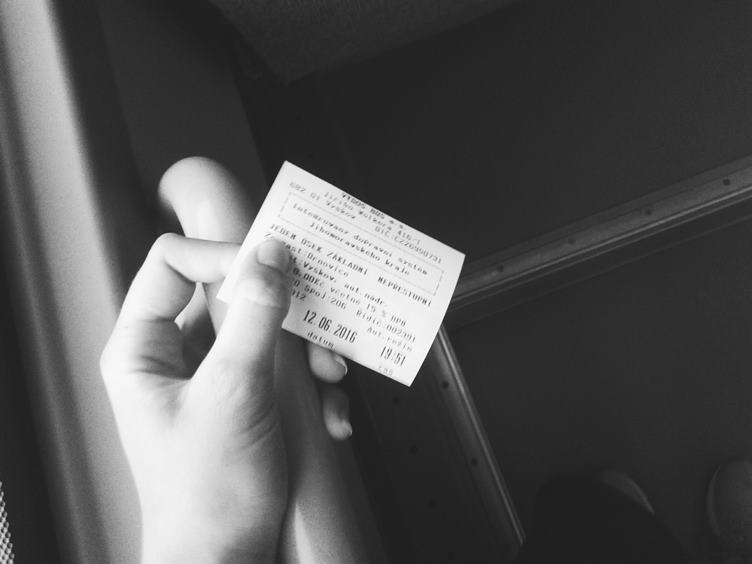 VYDOS BUS a.s.
Jiřího Wolkera 416/1
682 01 Vyškov DIČ:CZ26950731
Integrovaný dopravní systém
Jihomoravského kraje
JEDEN ÚSEK ZÁKLADNÍ NEPŘESTUPNÍ
Drnovice
Vyškov, aut.nádr.
0.00Kč včetně 15 % DPH
Spoj:206 Řidič:002391
Aut.režim
12.06 2016 19:51
datum čas